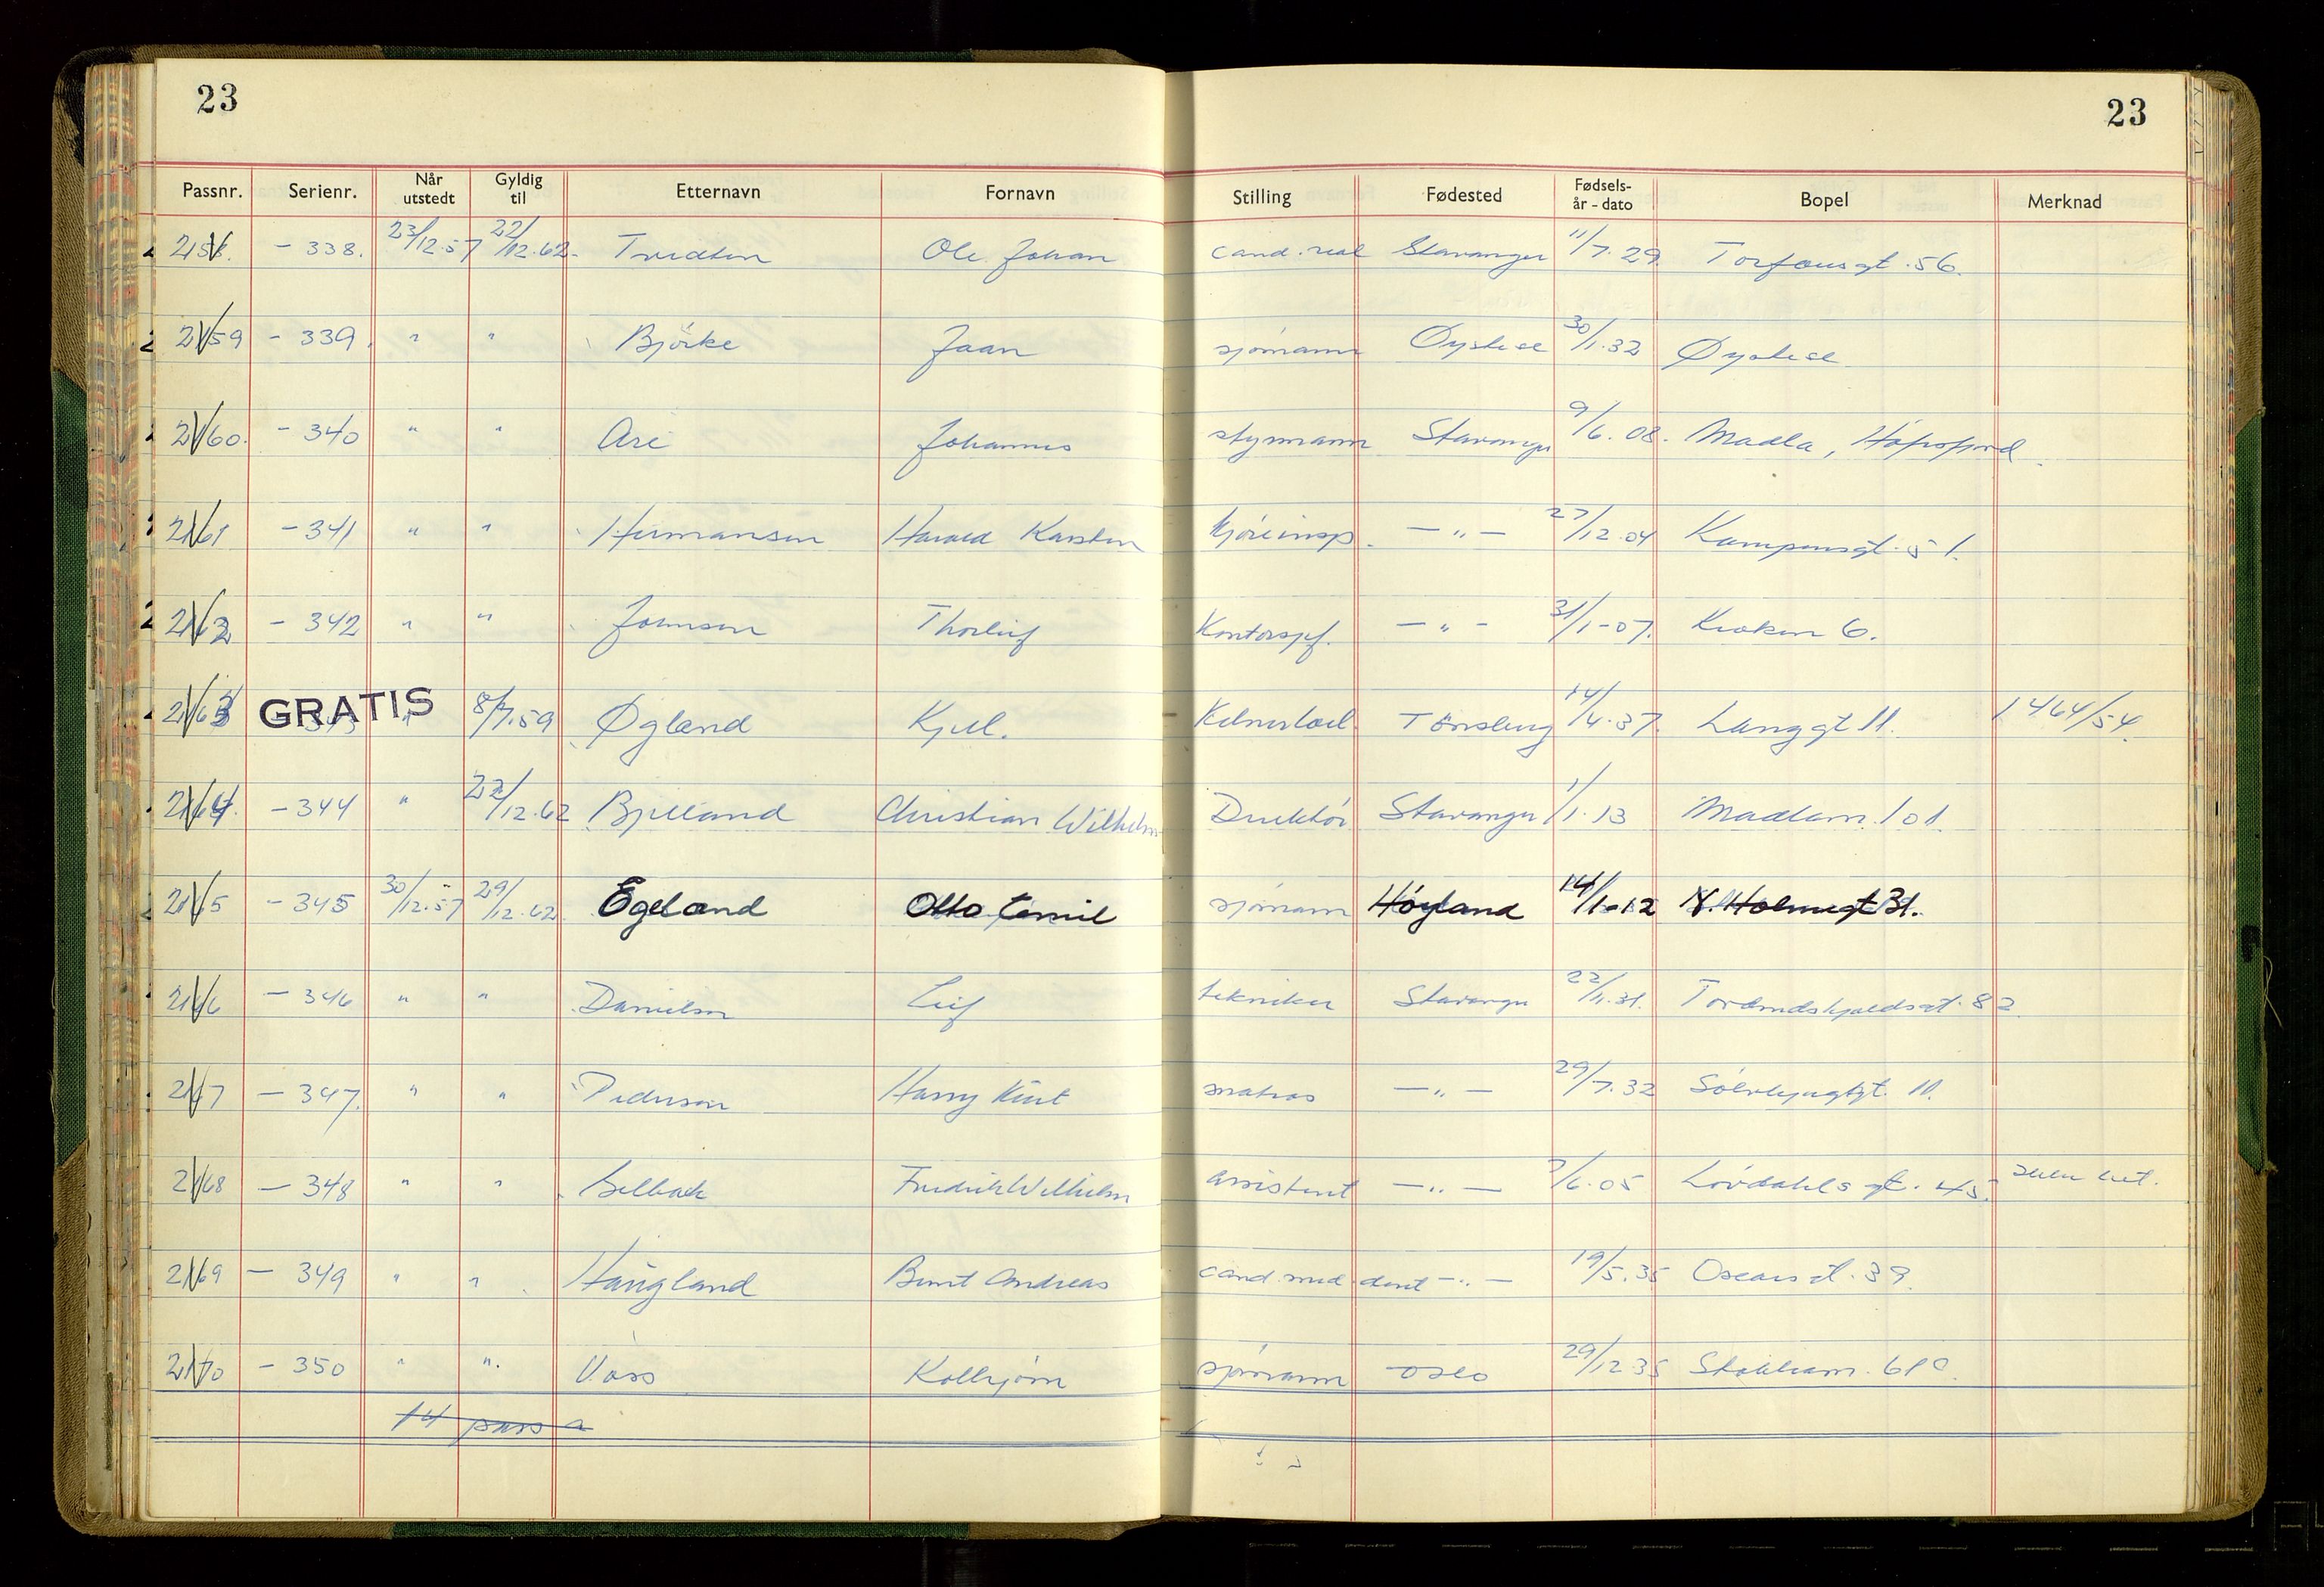 23 23
Passnr. Serienr. Når utstedt Gyldig til Etternavn Fornavn Stilling Fødested Fødsels- år - dato Bopel Merknad
2158. - 338. 23/12.57 22/12.62. Tvedten Ole Johan cand. real Stavanger 11/7.29. Torfæusgt. 56.
2159 - 339. " " Bjørke Jaan sjømann Øystese 30/1.32 Øystese
2160. - 340 " " Are Johannes styrmann Stavanger 9/6.08. Madla, Hafrsfjord.
2161 - 341 " " Hermansen Harald Karsten Kjøreinsp. - " - 27/12.04 Kampensgt. 51.
2162 - 342 " " Johnsen Thorleif Kontorsjef. - " - 31/1-07. Kroken 6.
2163 GRATIS 343 " 8/7.59 Øgland Kjell. Tønsberg 14/4.37. Langgt 11. 1464/54.
2164. - 344 " 22/12.62 Bjelland Christian Wilhelm Direktør Stavanger 1/1.13 Madlavn. 101.
2165 - 345 30/12.57 29/12.62 Egeland Otto Cemil sjømann Høyland 14/1-12 N. Holmegt 31.
2166 - 346 " " Danielsen Leif tekniker Stavanger 22/11.31. Tordenskjoldsgt. 82.
2167 - 347. " " Pedersen Harry Kurt matros - " - 29/7.32 Sølvbergtgt. 11.
2168 - 348 " " Selbach Fredrik Wilhelm assistent - " - 7/6.05 Løvdahls gt. 45.
2169 - 349 " " Haugland Bernt Andreas cand. med dent - " - 19/5.35 Oscarsgt. 39.
2170 - 350 " ". Voss Kolbjørn sjømann Oslo 29/12.35 Stokkavn. 61c.
14 pass